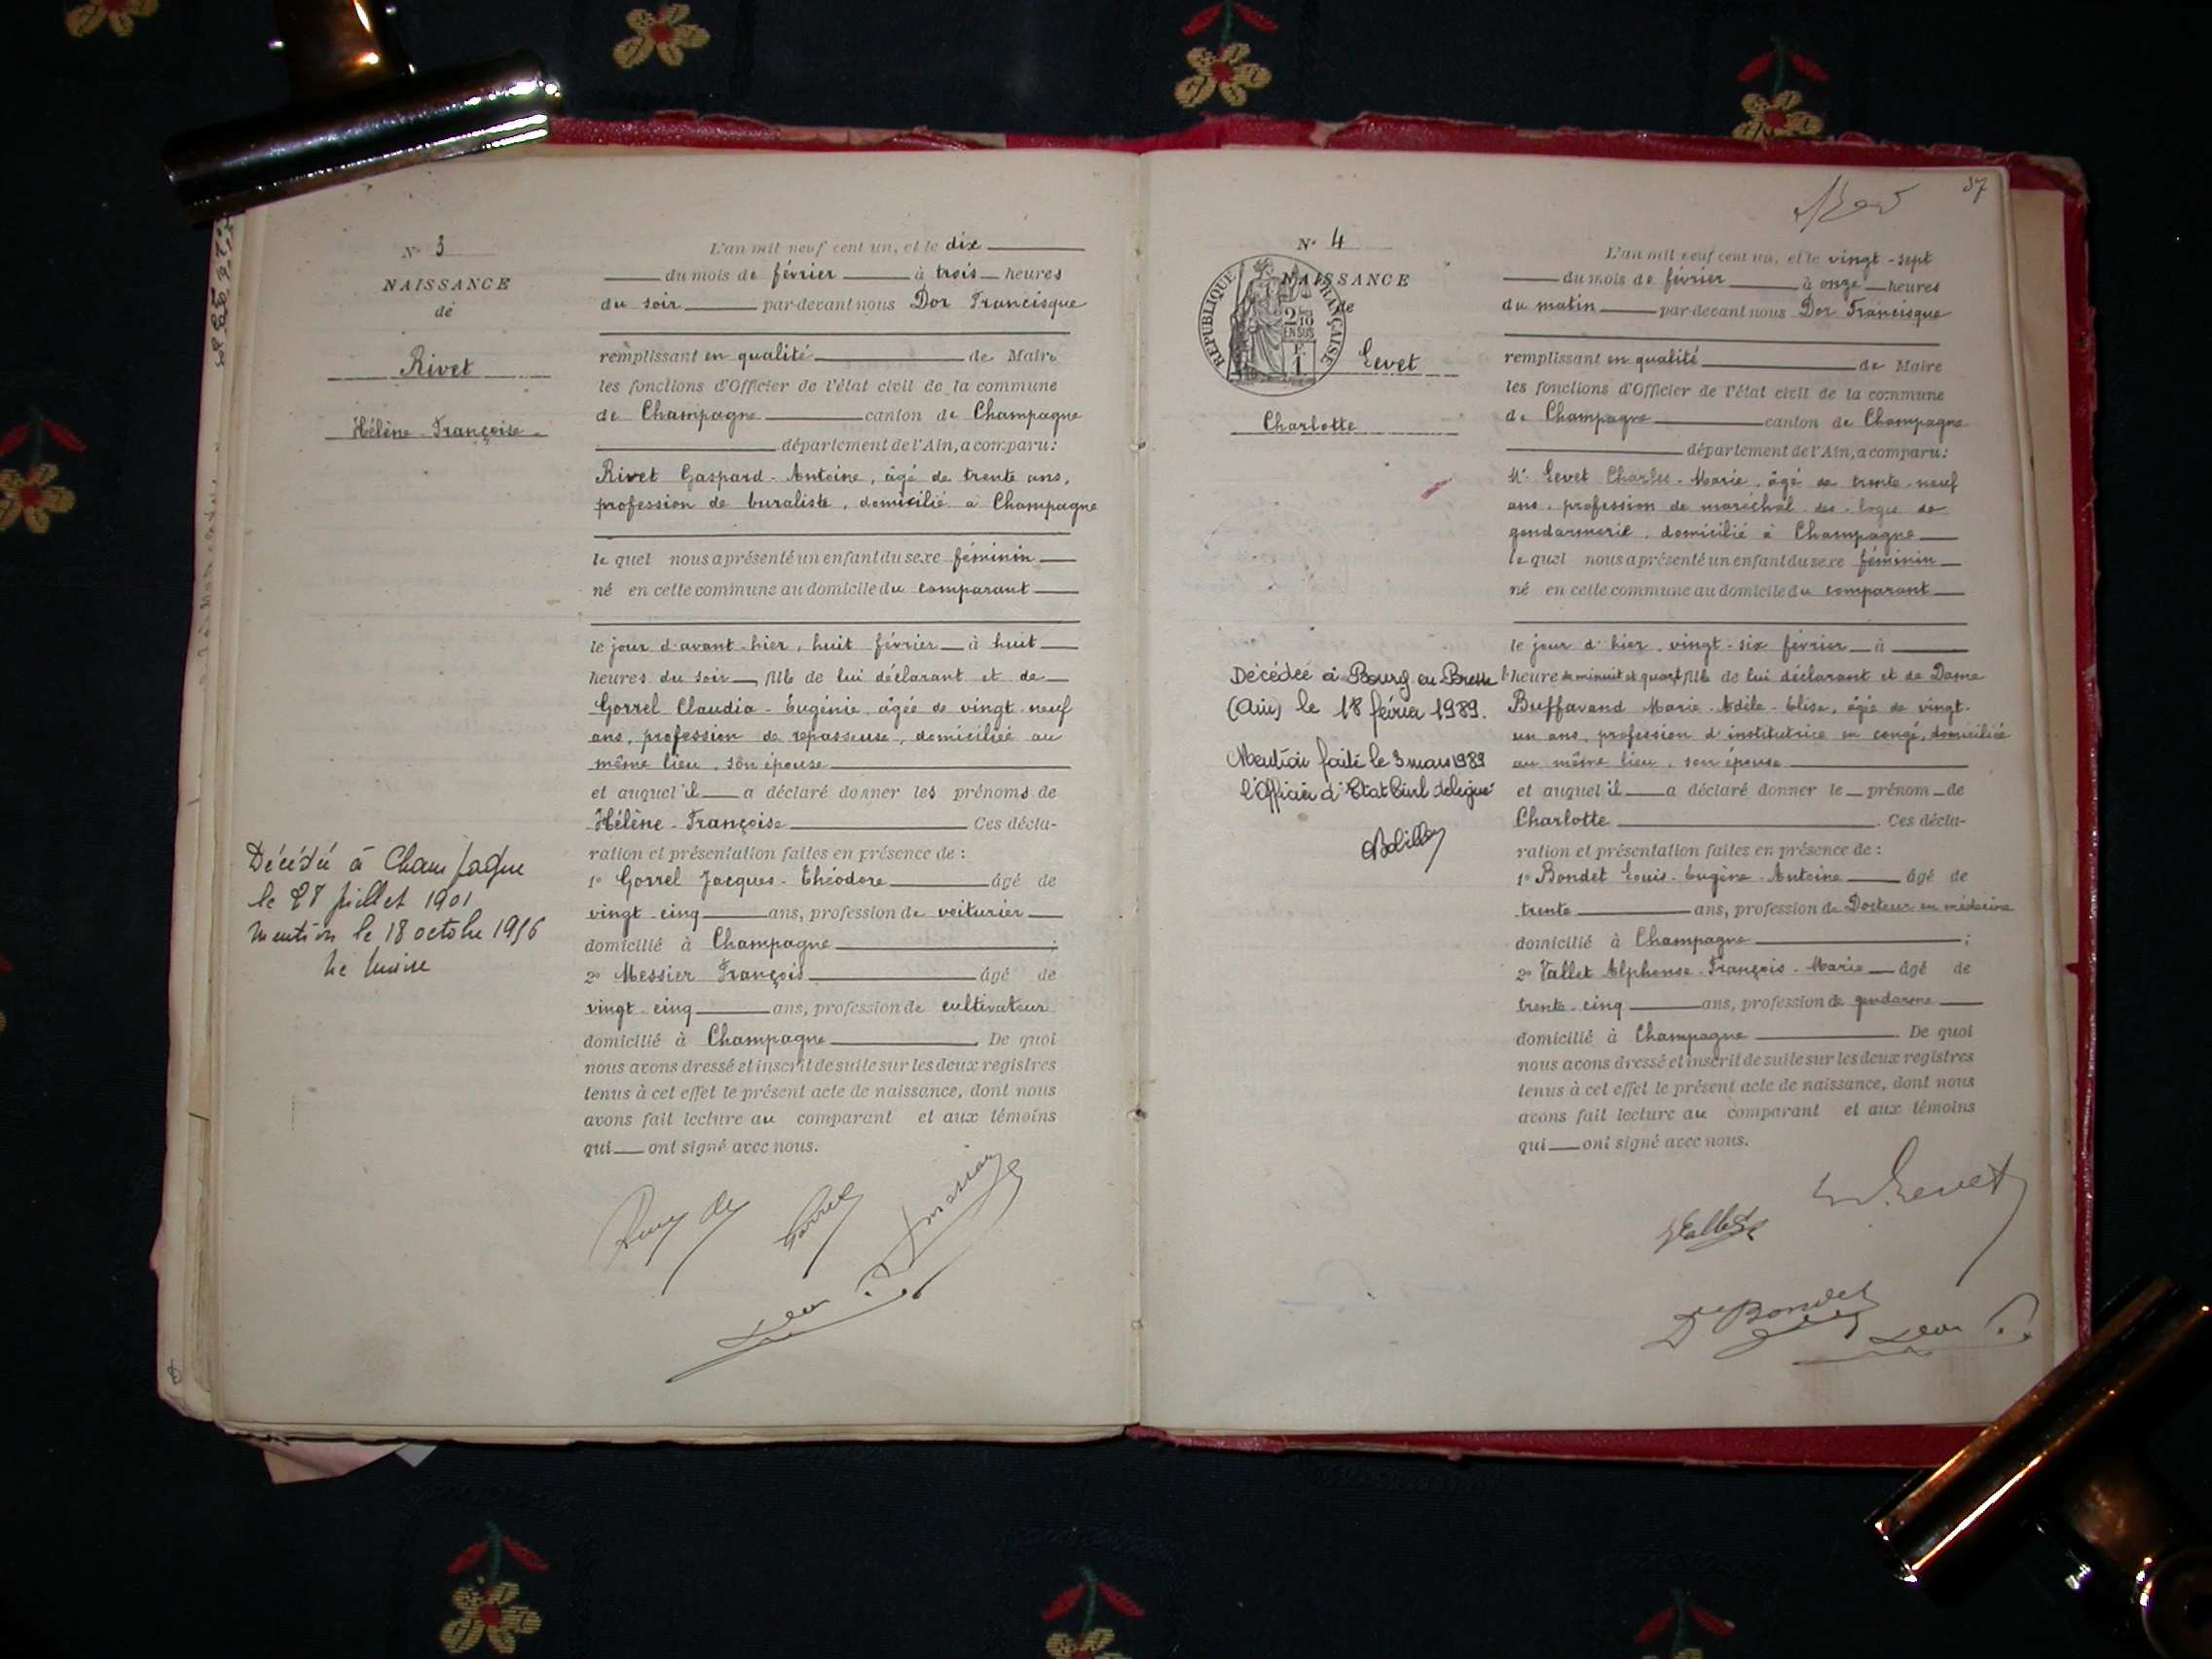 N° 3
NAISSANCE
de
Rivet
Hélène-Françoise
Décédée à Champagne
le 28 juillet 1901
Mention le 18 octobre 1956
Le Maire
L'an mil neuf cent un, et le dix
du mois de février à trois heures
du soir par-devant nous Dor Francisque
remplissant en qualité de Maire
les fonctions d'Officier de l'état civil de la commune
de Champagne canton de Champagne
département de l'Ain, a comparu:
Rivet Gaspard-Antoine, âgé de trente ans,
profession de buraliste, domicilié à Champagne
le quel nous a présenté un enfant du sexe féminin
né en cette commune au domicile du comparant
le jour d'avant-hier, huit février à huit
heures du soir, fille de lui déclarant et de
Gorrel Claudia-Eugénie, âgée de vingt-neuf
ans, profession de repasseuse, domiciliée au
même lieu, son épouse
et auquel il a déclaré donner les prénoms de
Hélène-Françoise Ces décla-
ration et présentation faites en présence de :
1° Gorrel Jacques-Théodore âgé de
vingt-cinq ans, profession de voiturier
domicilié à Champagne ;
2° Messier François âgé de
vingt-cinq ans, profession de cultivateur
domicilié à Champagne. De quoi
nous avons dressé et inscrit de suite sur les deux registres
tenus à cet effet le présent acte de naissance, dont nous
avons fait lecture au comparant et aux témoins
qui ont signé avec nous.
Gorrel
37
N° 4
NAISSANCE
de
RÉPUBLIQUE FRANÇAISE
2/10
EN SUS
F.
1
Levet
Charlotte
Décédée à Bourg en Bresse
(Ain) le 18 février 1989.
Mention faite le 3 mars 1989
l'Officier d'Etat Civil délégué
L'an mil neuf cent un, et le vingt-sept
du mois de février à onze heures
du matin par-devant nous Dor Francisque
remplissant en qualité de Maire
les fonctions d'Officier de l'état civil de la commune
de Champagne canton de Champagne
département de l'Ain, a comparu:
Mr Levet Charles-Marie, âgé de trente-neuf
ans, profession de maréchal-des-logis de
gendarmerie, domicilié à Champagne
le quel nous a présenté un enfant du sexe féminin
né en cette commune au domicile du comparant
le jour d'hier, vingt-six février à
l'heure de minuit et quart, fille de lui déclarant et de Dame
Buffavand Marie-Adèle-Elise, âgée de vingt-
un ans, profession d'institutrice en congé, domiciliée
au même lieu, son épouse
et auquel il a déclaré donner le prénom de
Charlotte. Ces décla-
ration et présentation faites en présence de :
1° Bondet Louis-Eugène-Antoine âgé de
trente ans, profession de Docteur en médecine
domicilié à Champagne ;
2° Vallet Alphonse-François-Marie âgé de
trente-cinq ans, profession de gendarme
domicilié à Champagne. De quoi
nous avons dressé et inscrit de suite sur les deux registres
tenus à cet effet le présent acte de naissance, dont nous
avons fait lecture au comparant et aux témoins
qui ont signé avec nous.
Levet
Vallet
Dr Bondet